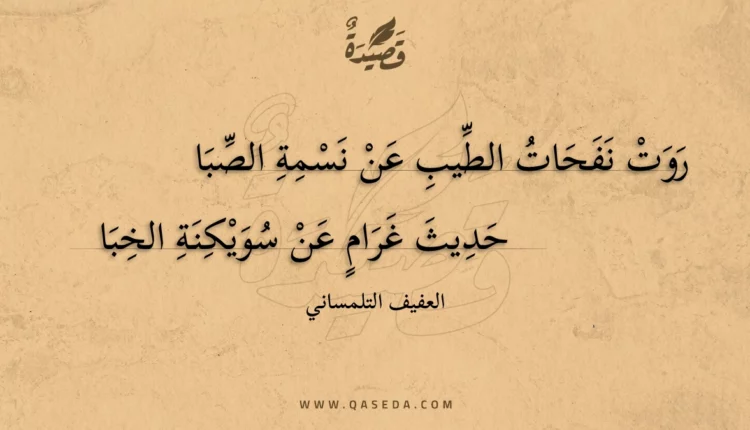 قَصِيدَةٌ
رَوَتْ نَفَحَاتُ الطِّيبِ عَنْ نَسْمِةِ الصِّبَا
حَدِيثَ غَرَامٍ عَنْ سُوَيْكِنَةِ الخِبَا
العفيف التلمساني
WWW.QASEDA.COM